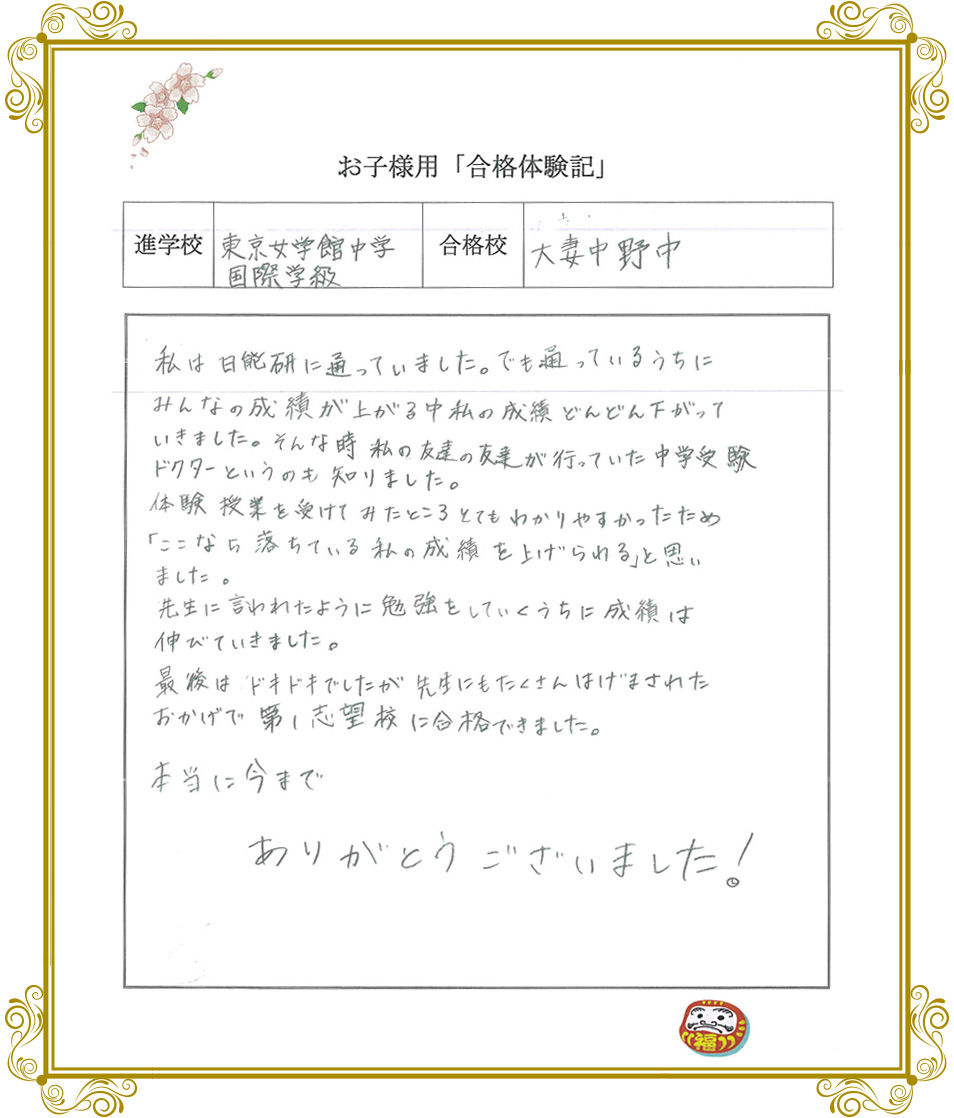 お子様用「合格体験記」
進学校
東京女学館中学
国際学級
合格校
大妻中野中
私は日能研に通っていました。でも通っているうちに
みんなの成績が上がる中私の成績どんどん下がって
いきました。そんな時私の友達の友達が行っていた中学受験
ドクターというのも知りました。
体験授業を受けてみたところとてもわかりやすかったため
「ここなら落ちている私の成績を上げられる」と思い
ました。
先生に言われたように勉強をしていくうちに成績は
伸びていきました。
最後はドキドキでしたが先生にもたくさんはげまされた
おかげで第1志望校に合格できました。
本当に今まで
ありがとうございました!
福